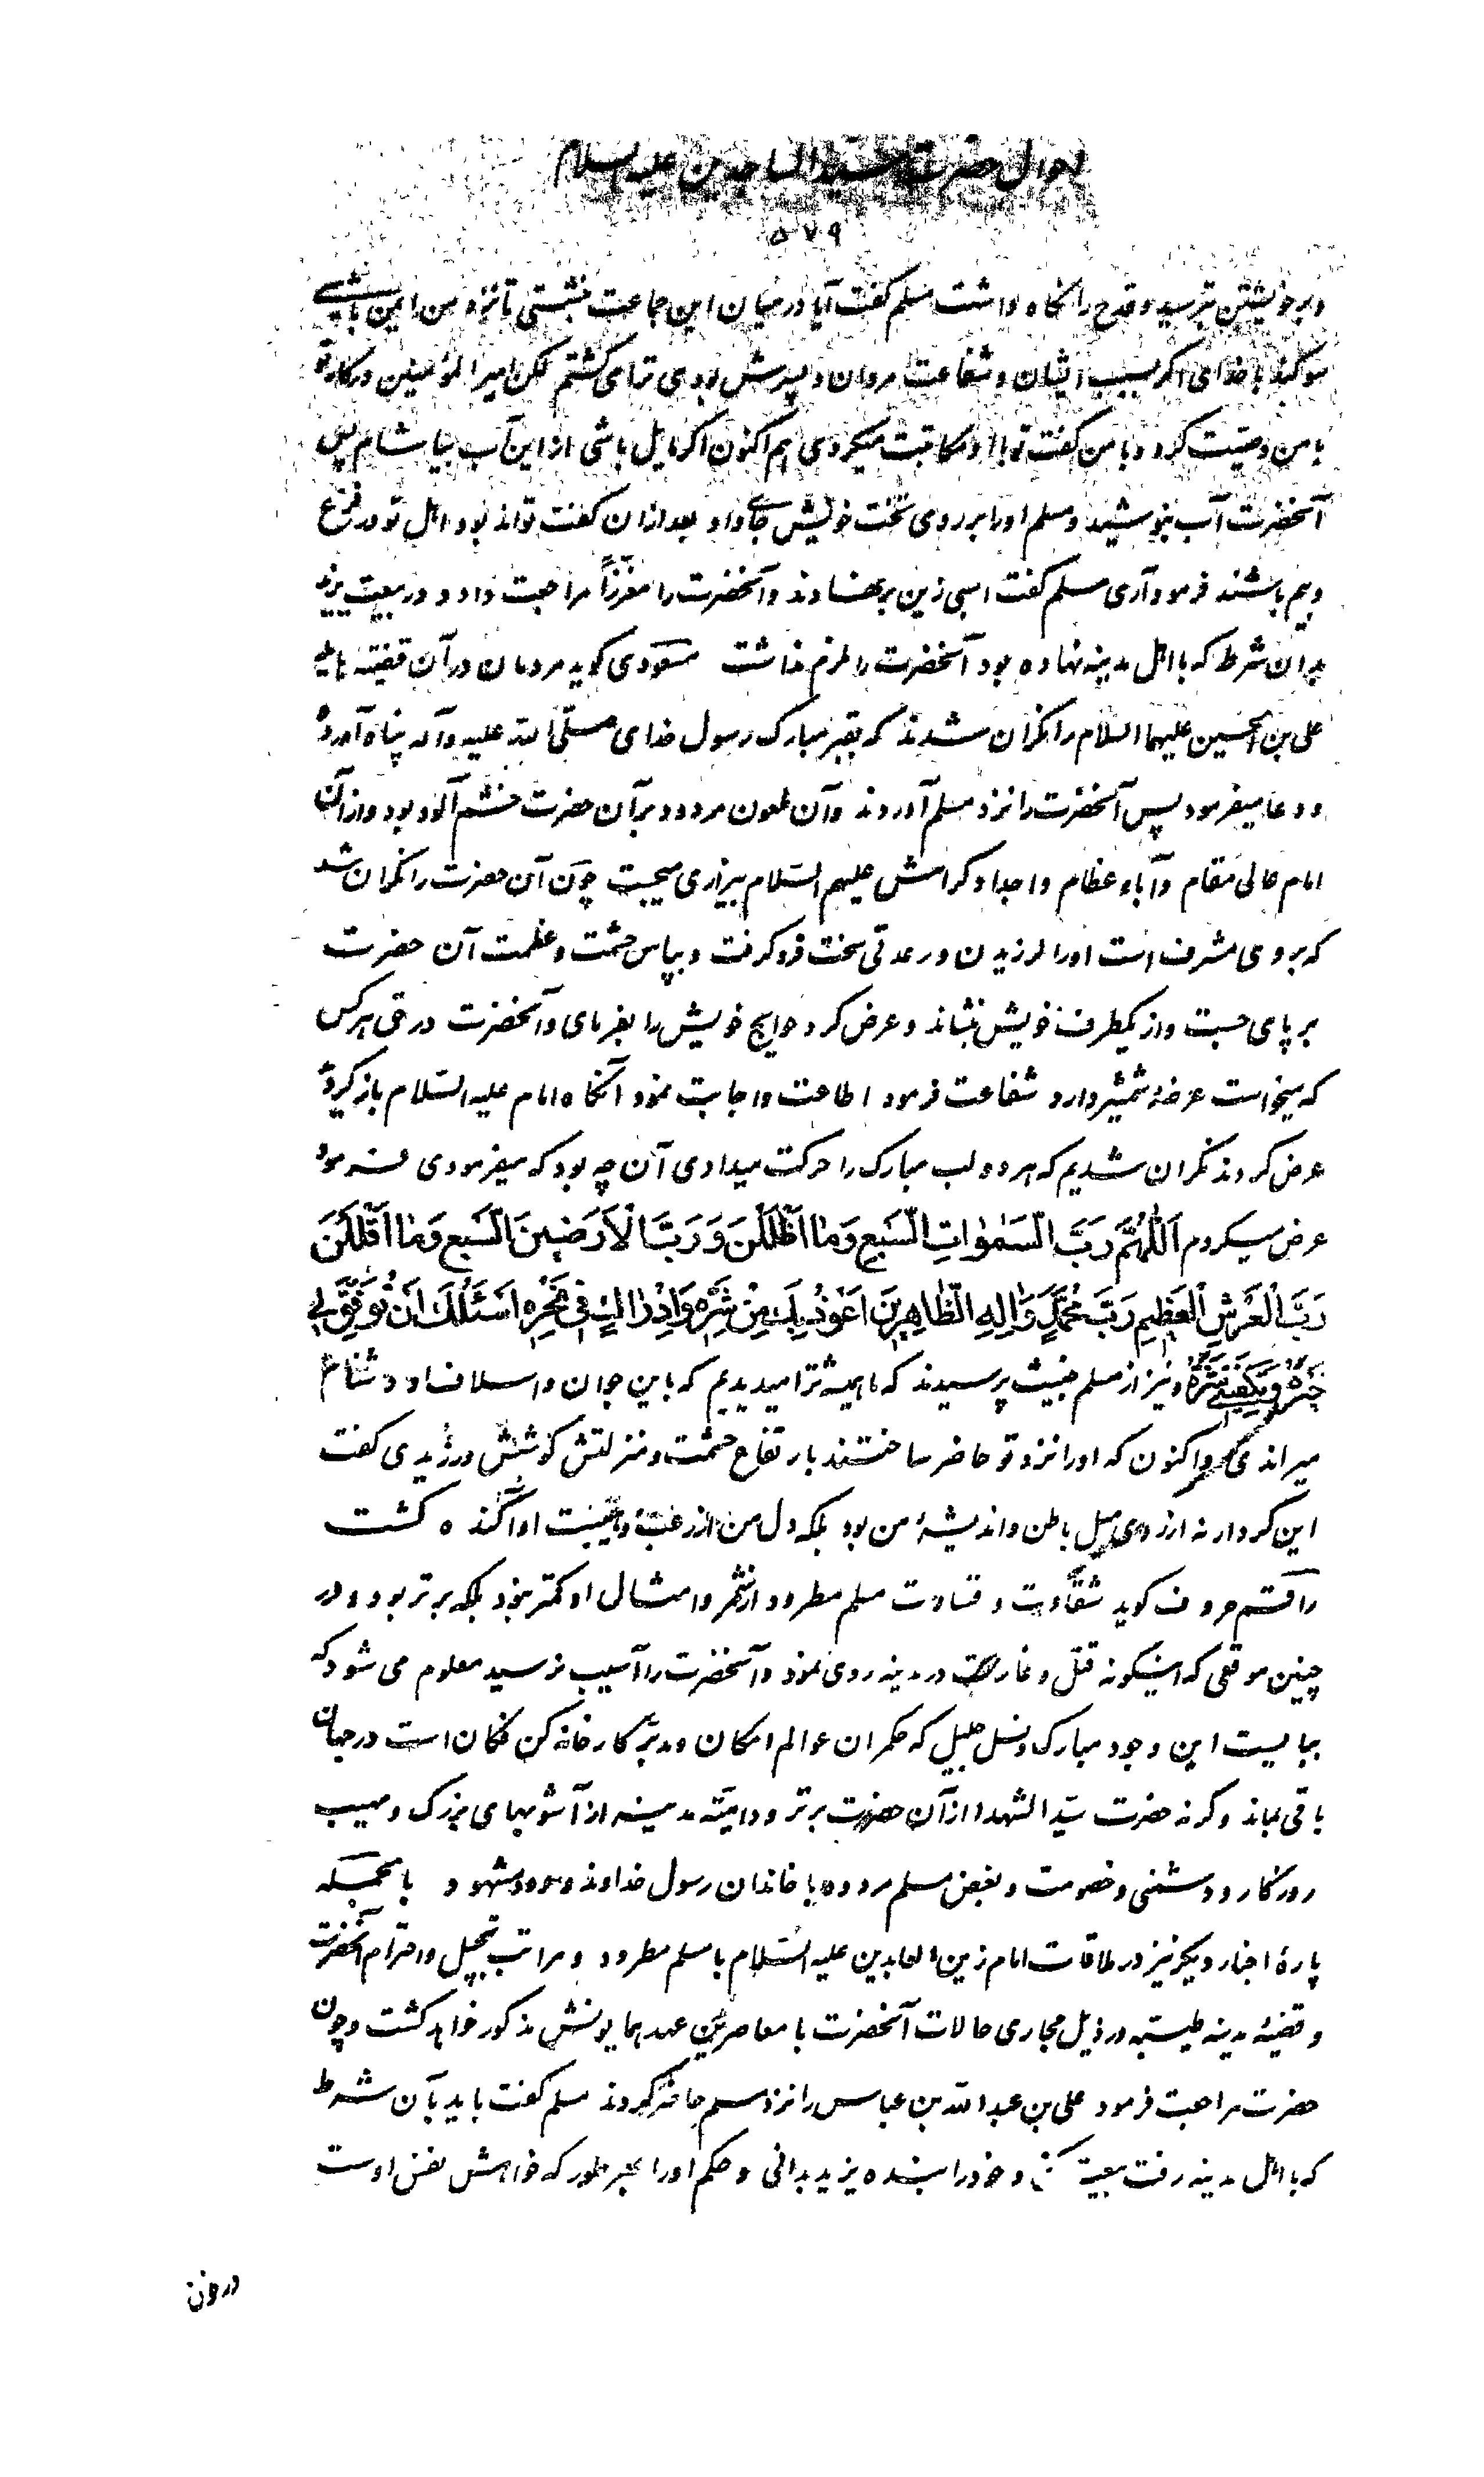 احوال حضرت سید الساجدین علیه السلام
۵۷۹
و بر خویشتن بترسید و قدح را نگاه داشت مسلم گفت آیا در میان این جماعت نشستی تا نزد من ایمن باشی
سوگند با خدای اگر بسبب ایشان و شفاعت مروان و پسرش بودی ترا می کشتم لکن امیر المؤمنین در کار تو
با من وصیت کرد و با من گفت تو با او مکاتبت میکردی هم اکنون اگر مایل باشی از این آب بیاشام پس
آنحضرت آب بنوشید و مسلم او را بر روی تخت خویش جای داد بعد از ان گفت تواند بود اهل تو در فزع
و بیم باشند فرمود آری مسلم گفت اسبی زین برنهادند و آنحضرت را معززاً مراجعت داد و در بیعت یزید
بدان شرط که با اهل مدینه نهاده بود آنحضرت را ملزم نداشت مسعودی گوید مردمان در آن قضیه هایله
علی بن الحسین علیهما السلام را نگران شدند که بقبر مبارک رسول خدای صلی الله علیه و آله پناه آورده
و دعا میفرمود پس آنحضرت را نزد مسلم آوردند و آن ملعون مردود بر آن حضرت خشم آلود بود و از آن
امام عالی مقام و آباء عظام و اجداد کرامش علیهم السلام بیزاری میجست چون آن حضرت را نگران شد
که بر وی مشرف است او را لرزیدن و رعدتی سخت فرو گرفت و بپاس حشمت و عظمت آن حضرت
بر پای جست و از یکطرف خویش بنشاند و عرض کرد حوایج خویش را بفرمای و آنحضرت در حق هر کس
که میخواست عرضهٔ شمشیر دارد شفاعت فرمود اطاعت و اجابت نمود آنگاه امام علیه السلام باز گردید
عرض کردند نگران شدیم که هر دو لب مبارک را حرکت میدادی آن چه بود که میفرمودی فرمود
عرض میکردم اَللّٰهُمَّ رَبَّ السَّمٰوٰاتِ السَّبعِ وَمٰا اَظْلَلْنَ وَ رَبَّ الْاَرَضینَ السَّبعِ وَمٰا اَقْلَلْنَ
رَبَّ الْعَرْشِ الْعَظیمِ رَبَّ مُحَمَّدٍ وَاٰلِهِ الطّاهِرینَ اَعُوذُ بِكَ مِنْ شَرِّهِ وَاَدْرَاُ بِكَ فی نَحْرِهِ اَسْئَلُكَ اَنْ تُوَفِّقَ لی
خَیْرَهُ وَ تَکْفِیَنی شَرَّهُ و نیز از مسلم خبیث پرسیدند که ما همیشه ترا میدیدیم که باین جوان و اسلاف او دشنام
میراندی و اکنون که او را نزد تو حاضر ساختند بارتفاع حشمت و منزلتش کوشش ورزیدی گفت
این کردار نه از روی میل باطن و اندیشهٔ من بود بلکه دل من از رعب و هیبت او آکنده گشت
راقم حروف گوید شقاوت و قساوت مسلم مطرود از شمر و امثال او کمتر نبود بلکه برتر بود و در
چنین موقعی که اینگونه قتل و غارت در مدینه روی نمود و آنحضرت را آسیب نرسید معلوم می شود که
ببایست این وجود مبارک و نسل جلیل که حکمران عوالم امکان و مدبر کارخانه کن فکان است در جهان
باقی بماند و گرنه حضرت سید الشهداء از آن حضرت برتر و داهیه مدینه از آشوبهای بزرگ و مهیب
روزگار و دشمنی و خصومت و بغض مسلم مردود با خاندان رسول خداوند ودود مشهود بالجمله
پارهٔ اخبار دیگر نیز در ملاقات امام زین العابدین علیه السلام با مسلم مطرود و مراتب تبجیل و احترام آنحضرت
و قضیهٔ مدینه طیبه در ذیل مجاری حالات آنحضرت با معاصرین عهد همایونش مذکور خواهد گشت و چون
حضرت مراجعت فرمود علی بن عبد الله بن عباس را نزد مسلم حاضر کردند مسلم گفت باید بآن شرط
که با اهل مدینه رفت بیعت کنی و خود را بنده یزید بدانی و حکم او را بهر طور که خواهش نفس اوست
در خون